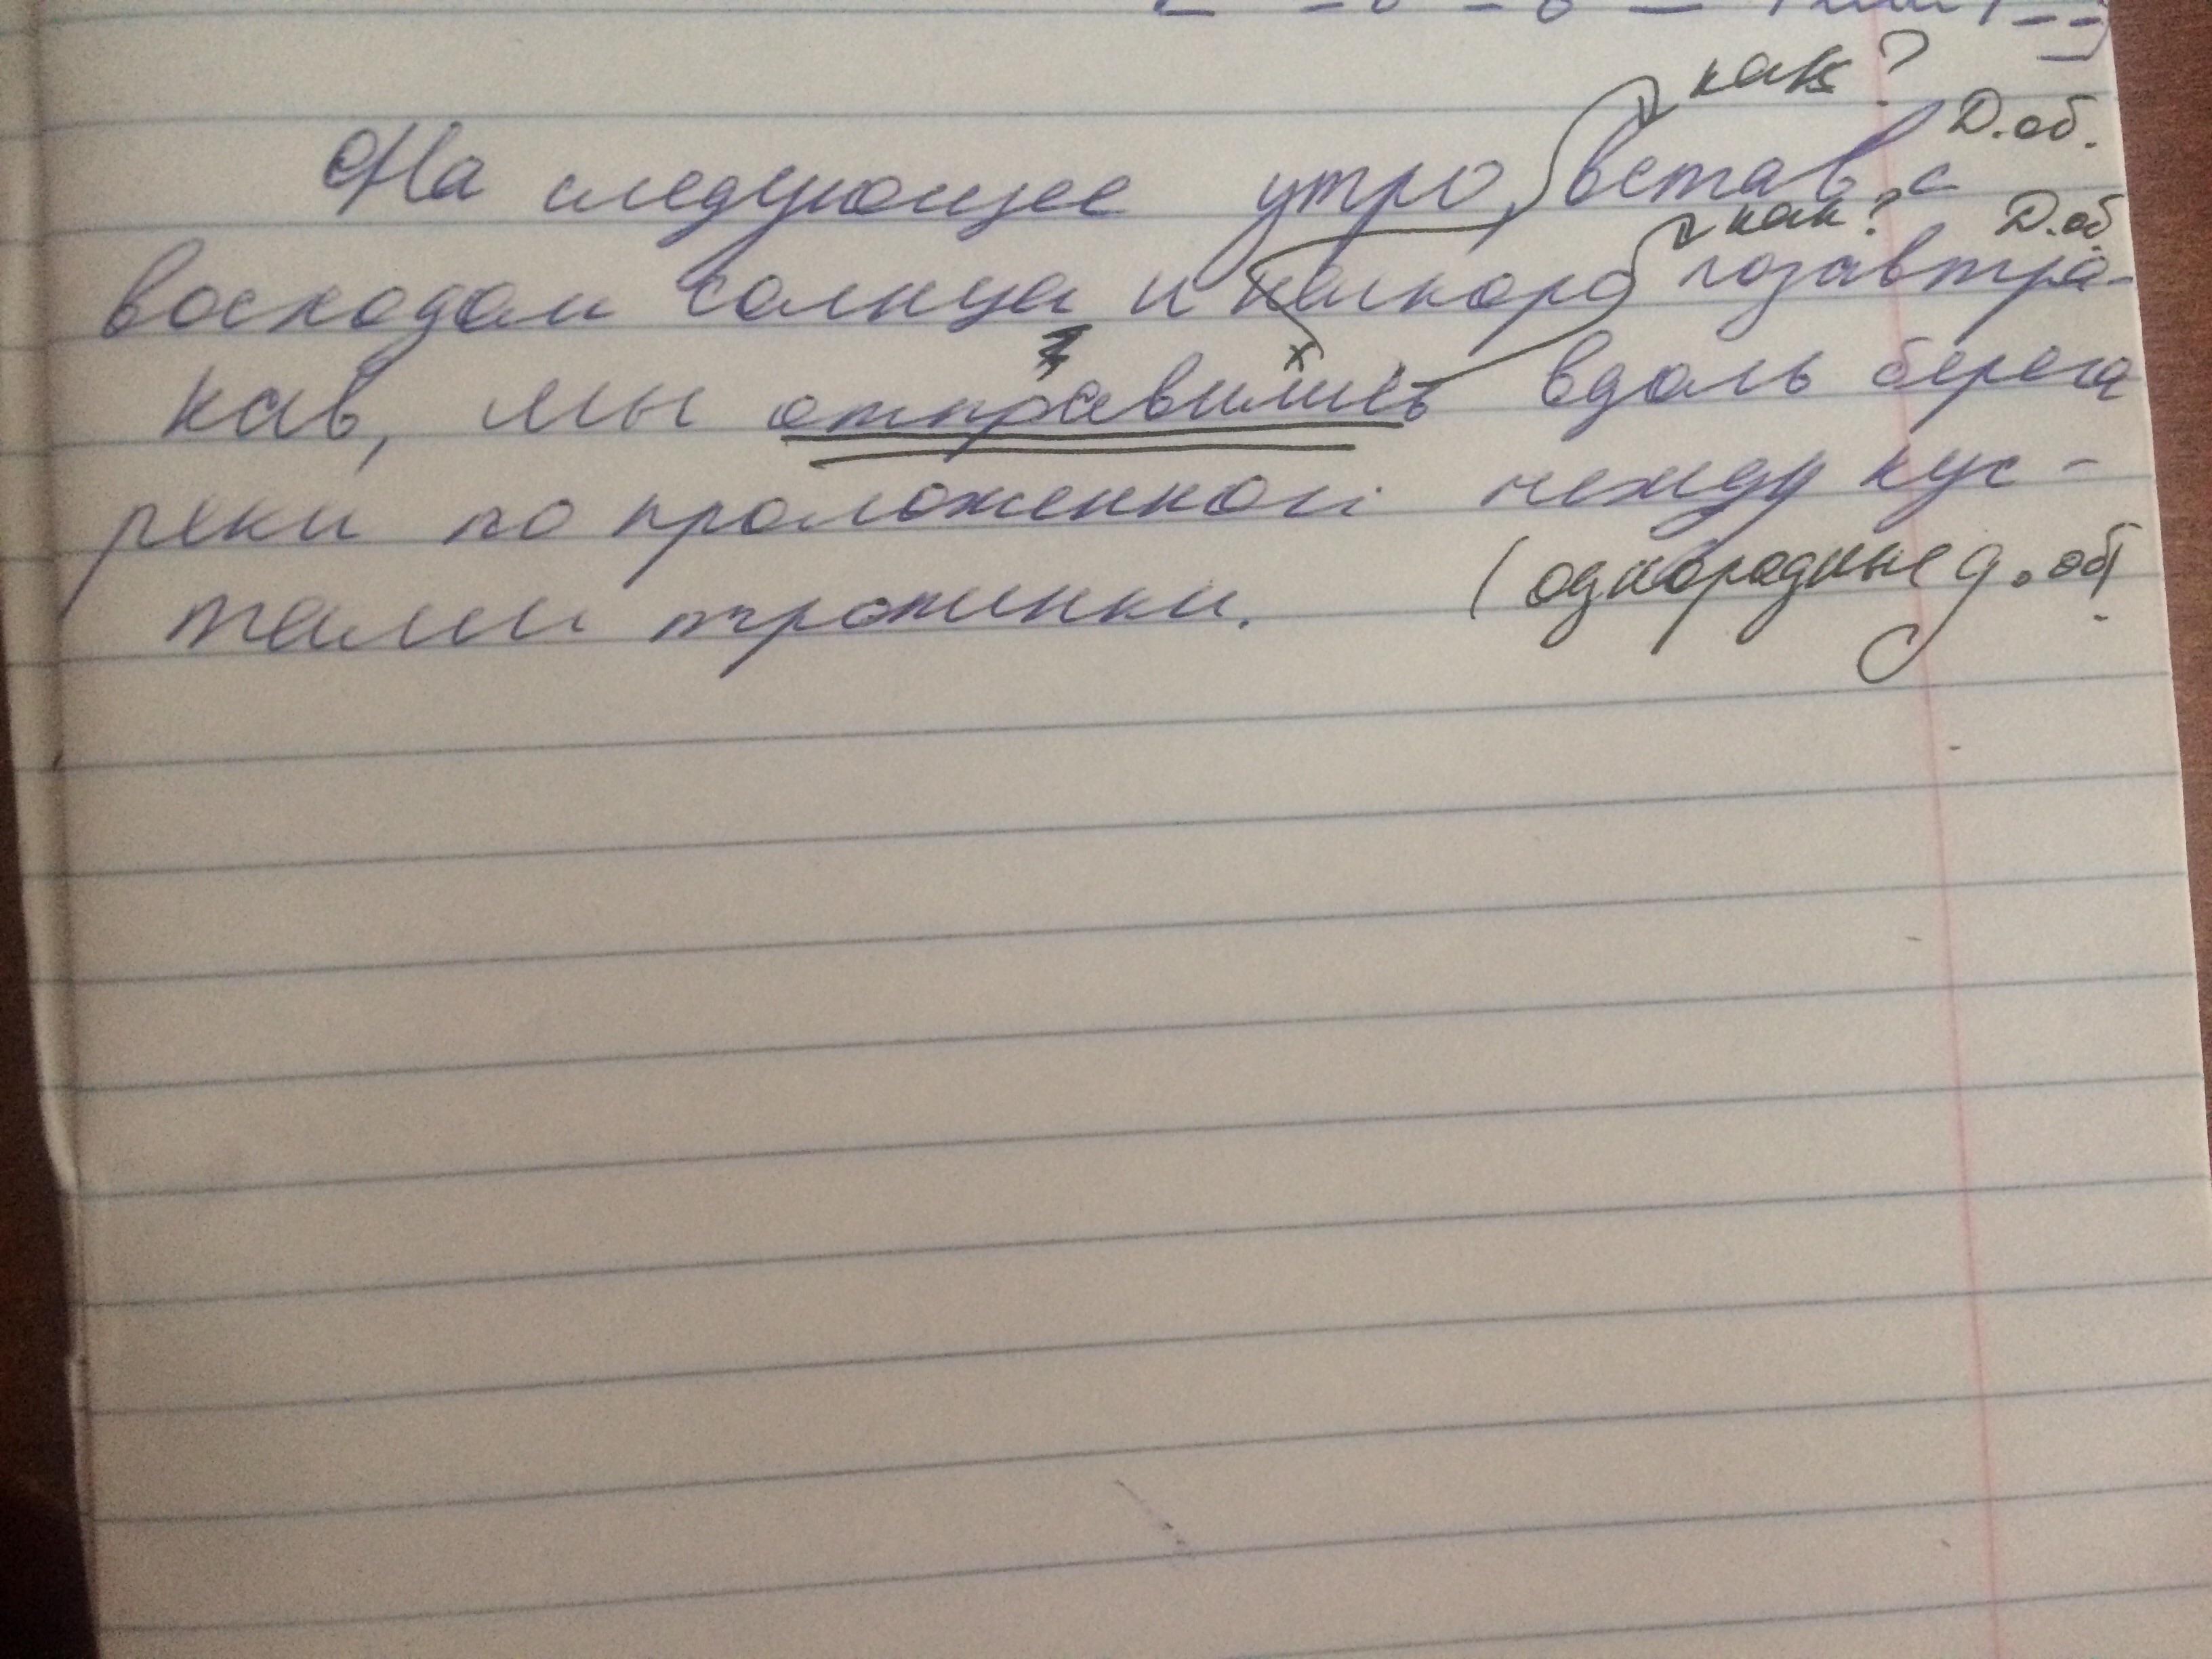 как?
Д.об.
На следующее утро, встав с
как? Д.об.
восходом солнца и наскоро позавтра-
кав, мы отправились вдоль берега
реки по проложенной между кус-
тами тропинки.
(однородные д.об.)